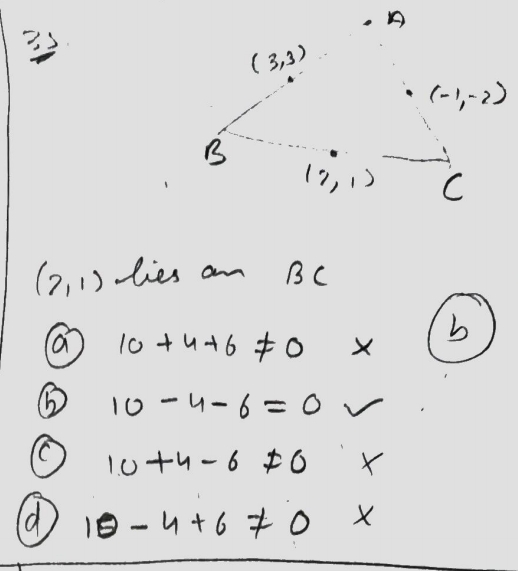 A
(3,3)
(-1,-2)
B
(2,1)
C
(2,1) lies on BC
(a) 10 + 4 + 6 ≠ 0 ×
(b)
(b) 10 - 4 - 6 = 0 ✓
(c) 10 + 4 - 6 ≠ 0 ×
(d) 10 - 4 + 6 ≠ 0 ×